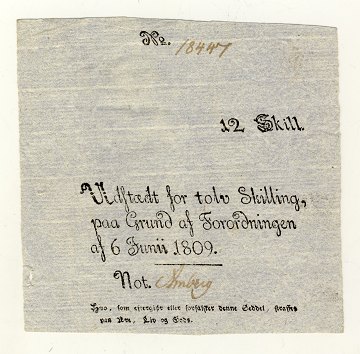 No. 18447
12 Skill.
Udstædt for tolv Skilling,
paa Grund af Forordningen
af 6 Junii 1809.
Not.
Hvo, som eftergiør eller forfalsker denne Seddel, straffes
paa Ære, Liv og Gods.